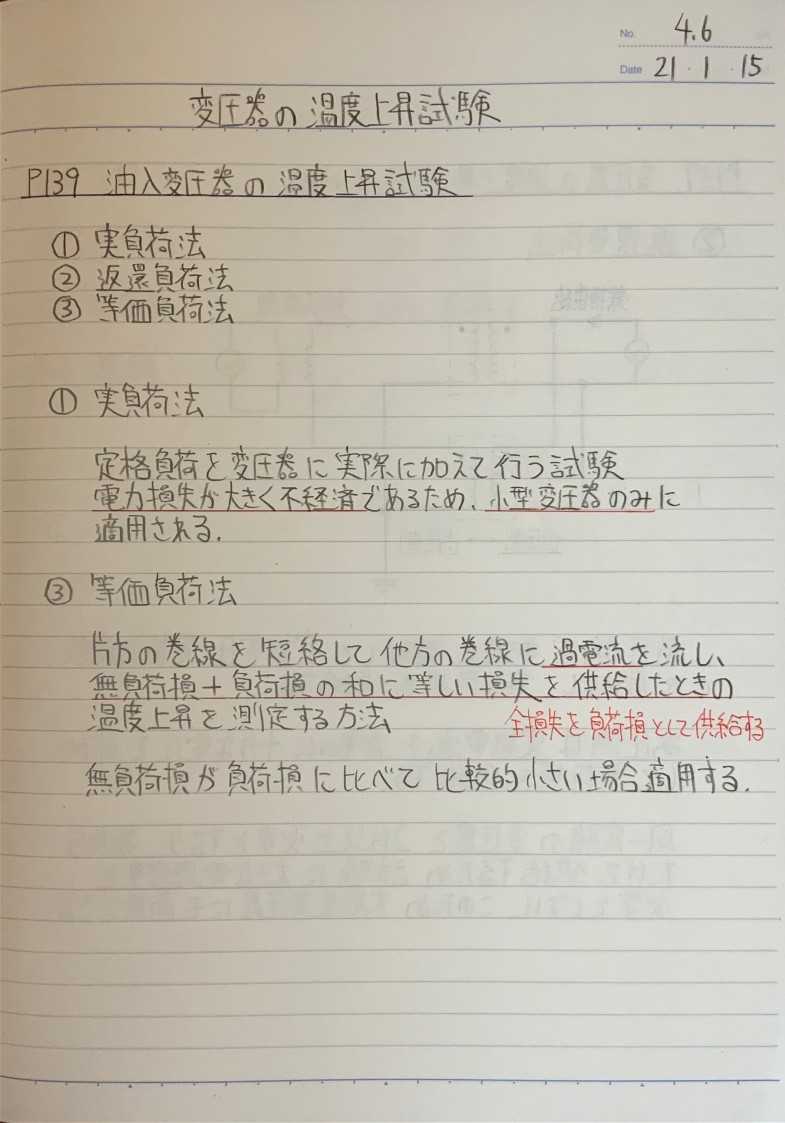 No. 4.6
Date 21・1・15
変圧器の温度上昇試験
P139 油入変圧器の温度上昇試験
① 実負荷法
② 返還負荷法
③ 等価負荷法
① 実負荷法
定格負荷を変圧器に実際に加えて行う試験
電力損失が大きく不経済であるため、小型変圧器のみに
適用される.
③ 等価負荷法
片方の巻線を短絡して他方の巻線に過電流を流し、
無負荷損+負荷損の和に等しい損失を供給したときの
温度上昇を測定する方法
全損失を負荷損として供給する
無負荷損が負荷損に比べて比較的小さい場合適用する.